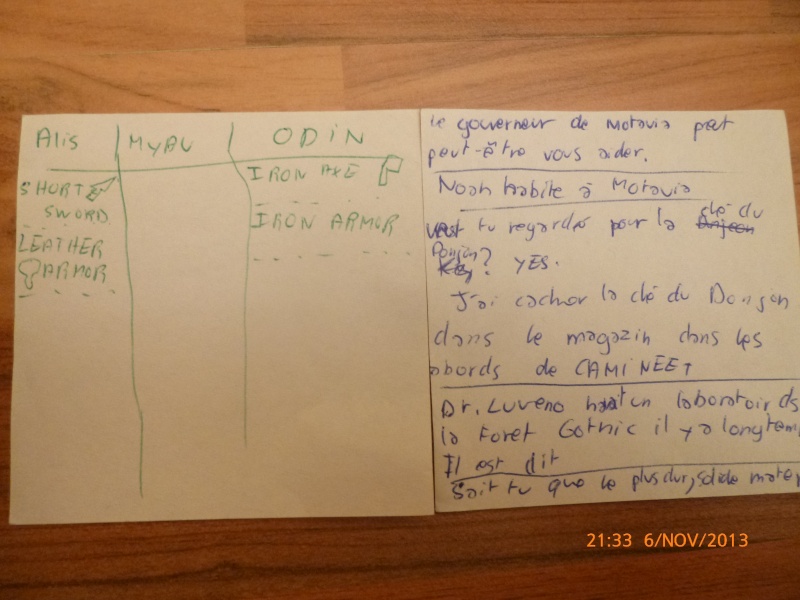 Alis MYAU ODIN
IRON AXE
SHORT
SWORD
IRON ARMOR
LEATHER
ARMOR
le gouverneur de Motavia peut
peut-être vous aider.
Noah habite à Motavia
tu regardé pour la clé du
Donjon? YES.
J'ai cacher la clé du Donjon
dans le magazin dans les
abords de CAMINEET
Dr. Luveno un laboratoir ds
la Foret Gothic il y a longtem
Il est dit
Sait tu que le plus dur, solide mate
21:33 6/NOV/2013